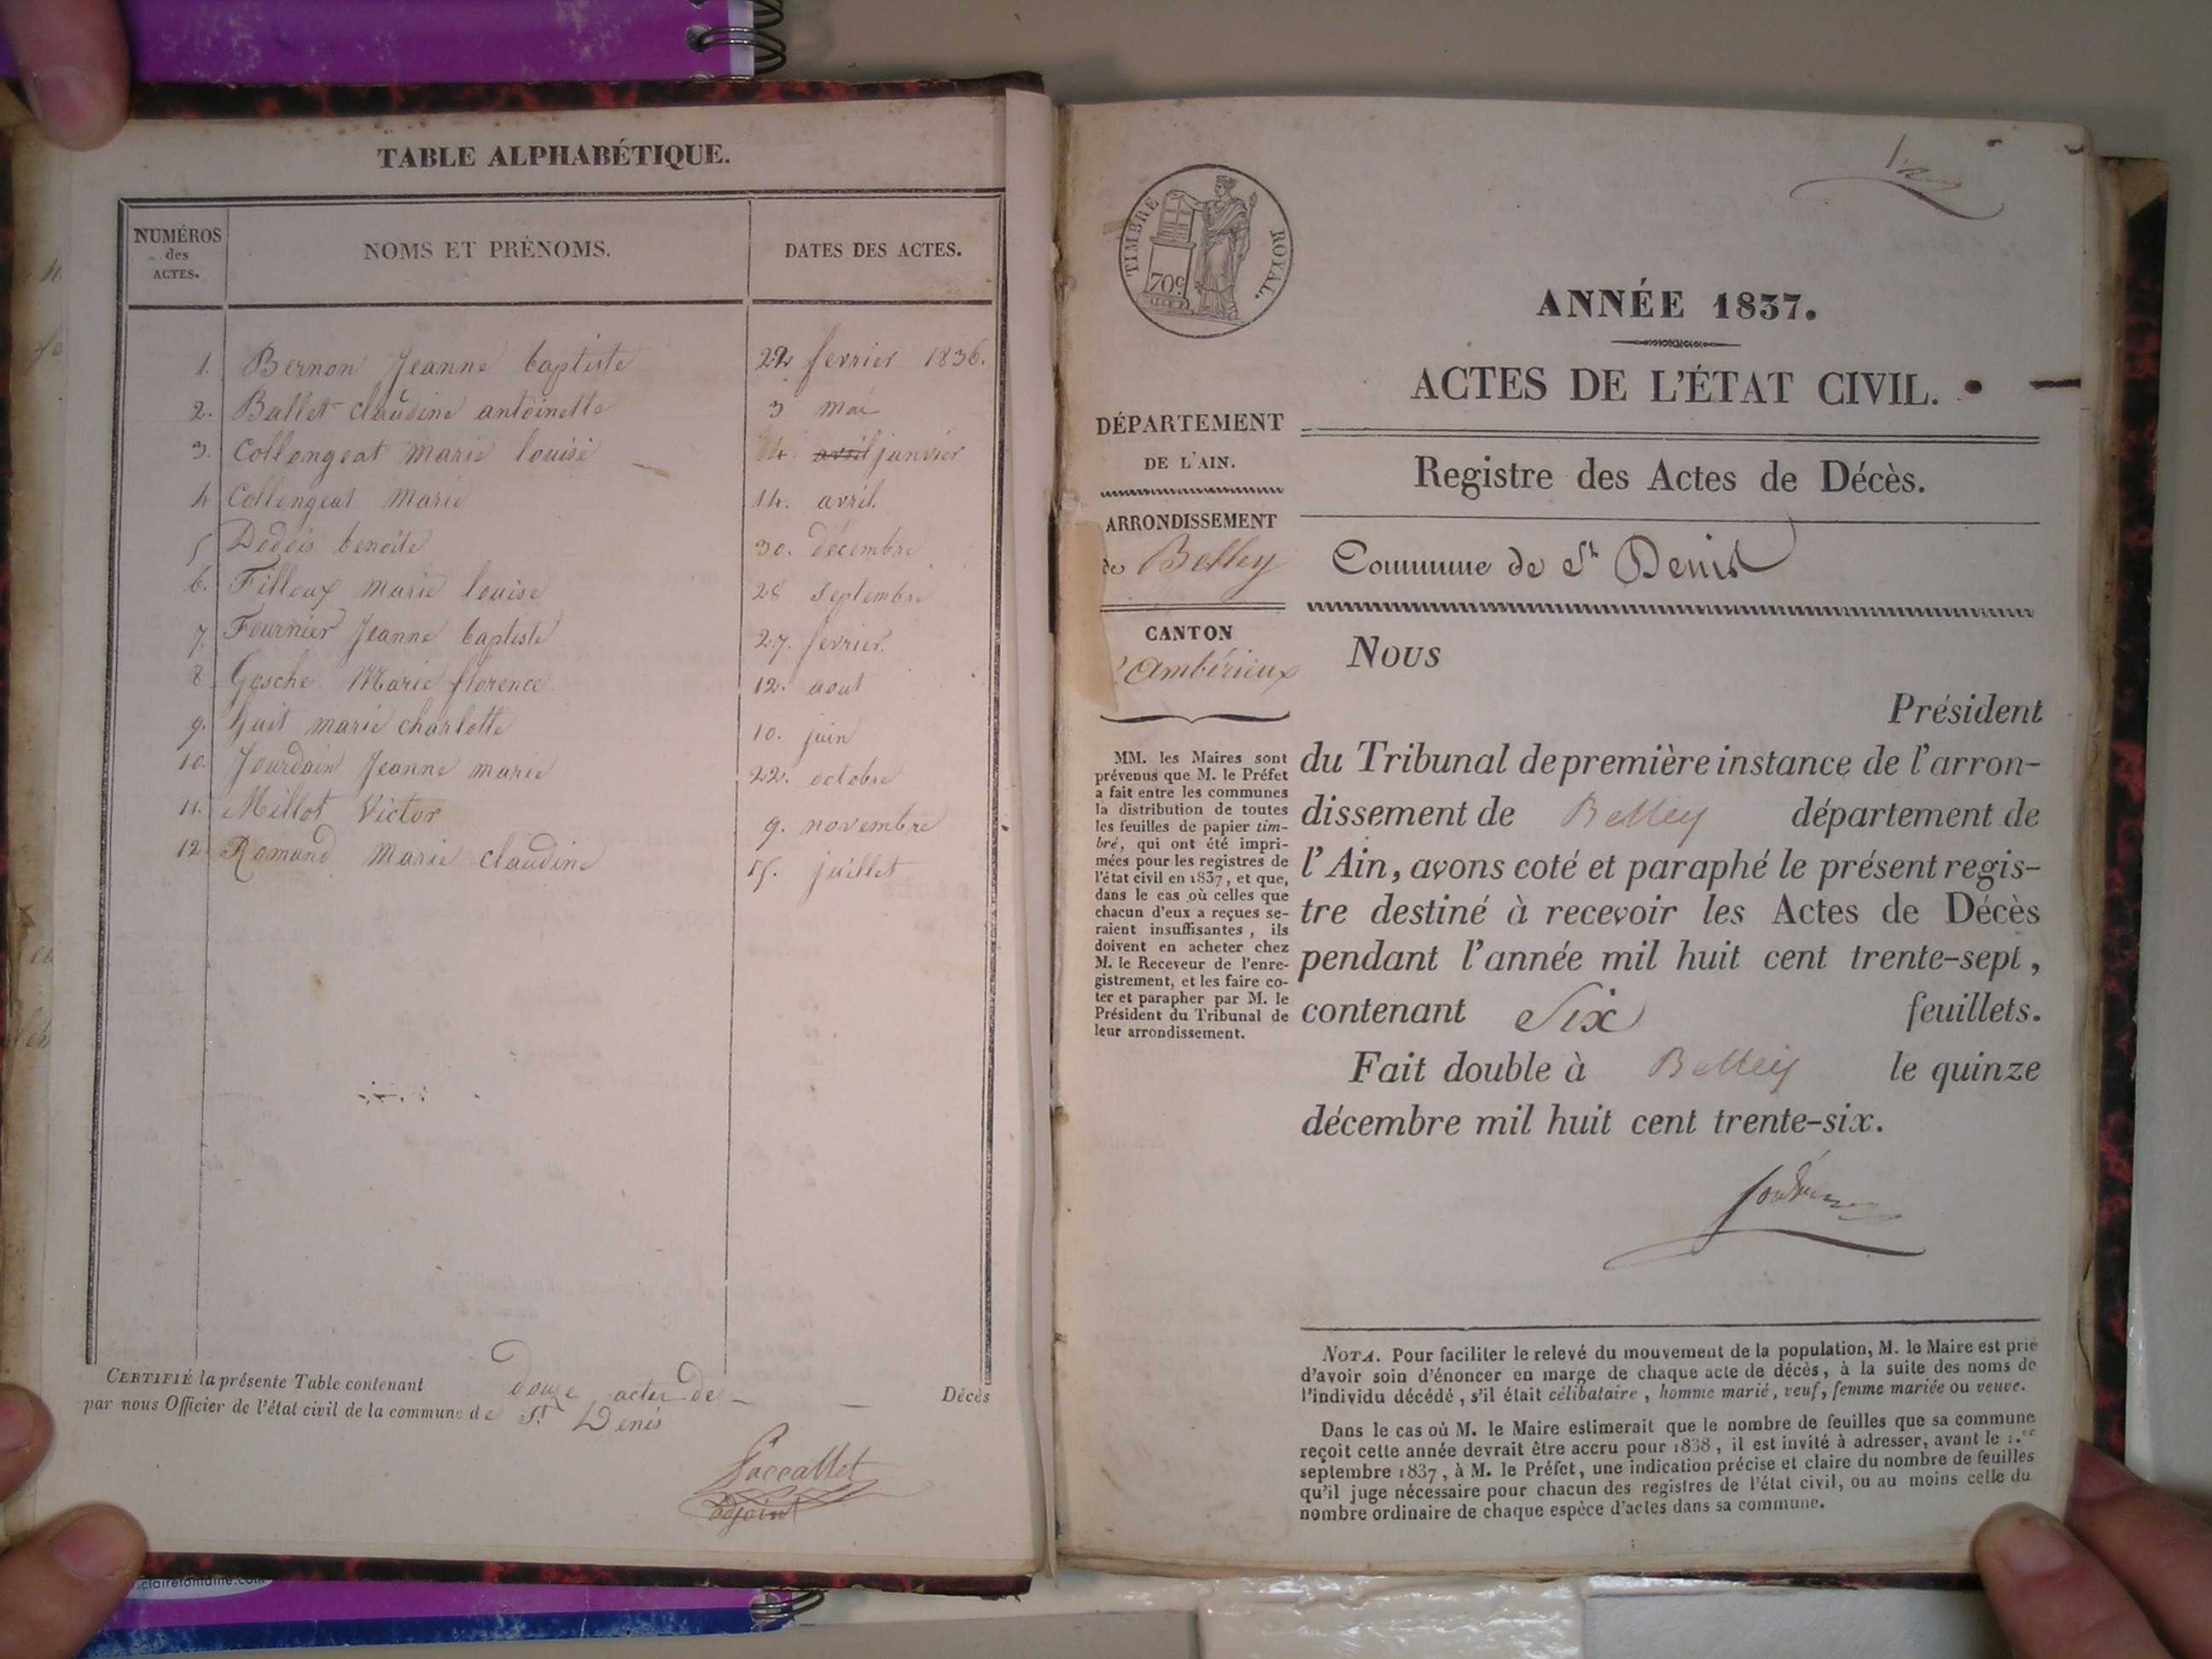 TABLE ALPHABÉTIQUE.
NUMÉROS
des
ACTES.
NOMS ET PRÉNOMS.
DATES DES ACTES.
1. Bernon Jeanne baptiste 22 fevrier 1836.
2. Ballet claudine antoinette 3 mai
3. Collongeat marie louise 14. avril janvier
4 Collongeat marie 14. avril.
5 benoite 30. decembre
6. Filloux marie louise 28 septembre
7. Fournier Jeanne baptiste 27. fevrier.
8. Gosche Marie florence 12. aout
9. huit marie charlotte 10. juin
10. Jourdain Jeanne marie 22. octobre
11. Millot Victor 9. novembre
12 Romand Marie claudine 15. juillet
CERTIFIÉ la présente Table contenant douze actes de Décès
par nous Officier de l'état civil de la commune de St Denis
Paccallet
adjoint
clairefontaine.com
TIMBRE ROYAL.
70c
ANNÉE 1837.
ACTES DE L'ÉTAT CIVIL.
DÉPARTEMENT
DE L'AIN.
ARRONDISSEMENT
de Belley
CANTON
d'Ambérieux
MM. les Maires sont
prévenus que M. le Préfet
a fait entre les communes
la distribution de toutes
les feuilles de papier tim-
bré, qui ont été impri-
mées pour les registres de
l'état civil en 1837, et que,
dans le cas où celles que
chacun d'eux a reçues se-
raient insuffisantes, ils
doivent en acheter chez
M. le Receveur de l'enre-
gistrement, et les faire co-
ter et parapher par M. le
Président du Tribunal de
leur arrondissement.
Registre des Actes de Décès.
Commune de St Denis
Nous
Président
du Tribunal de première instance de l'arron-
dissement de Belley département de
l'Ain, avons coté et paraphé le présent regis-
tre destiné à recevoir les Actes de Décès
pendant l'année mil huit cent trente-sept,
contenant Six feuillets.
Fait double à Belley le quinze
décembre mil huit cent trente-six.
NOTA. Pour faciliter le relevé du mouvement de la population, M. le Maire est prié
d'avoir soin d'énoncer en marge de chaque acte de décès, à la suite des noms de
l'individu décédé, s'il était célibataire, homme marié, veuf, femme mariée ou veuve.
Dans le cas où M. le Maire estimerait que le nombre de feuilles que sa commune
reçoit cette année devrait être accru pour 1838, il est invité à adresser, avant le 1.er
septembre 1837, à M. le Préfet, une indication précise et claire du nombre de feuilles
qu'il juge nécessaire pour chacun des registres de l'état civil, ou au moins celle du
nombre ordinaire de chaque espèce d'actes dans sa commune.